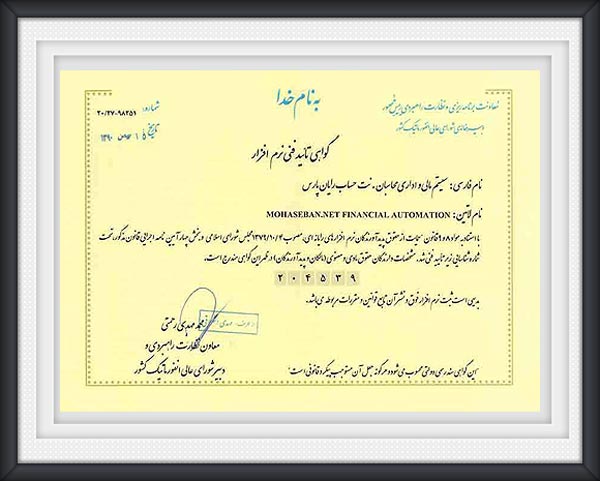 به نام خدا
معاونت برنامه‌ریزی و نظارت راهبردی رییس جمهور
دبیرخانه شورای عالی انفورماتیک کشور
شماره: ۲۰/۲۷-۹۸۲۵۱
تاریخ: ۱۳۹۰
گواهی تأیید فنی نرم افزار
نام فارسی: سیستم مالی و اداری محاسبان . نت حساب رایان پارس
نام لاتین: MOHASEBAN.NET FINANCIAL AUTOMATION
با استناد مواد ۸ و ۹ قانون "حمایت از حقوق پدیدآورندگان نرم افزارهای رایانه ای"، مصوب ۱۳۷۹/۱۰/۴ مجلس شورای اسلامی و بخش چهار آیین نامه اجرایی قانون مذکور، تحت
شماره شناسایی زیر تأیید فنی شد. مشخصات دارندگان حقوق مادی و معنوی (مالکان و پدیدآورندگان) در ظهر این گواهی مندرج است.
۲۰۴۵۳۹
بدیهی است ثبت نرم افزار فوق و نشر آن تابع قوانین و مقررات مربوطه می باشد.
محمد مهدی رحمتی
معاون نظارت راهبردی و
دبیر شورای عالی انفورماتیک کشور
"این گواهی سند رسمی دولتی محسوب می شود و هرگونه جعل آن مستوجب پیگرد قانونی است"